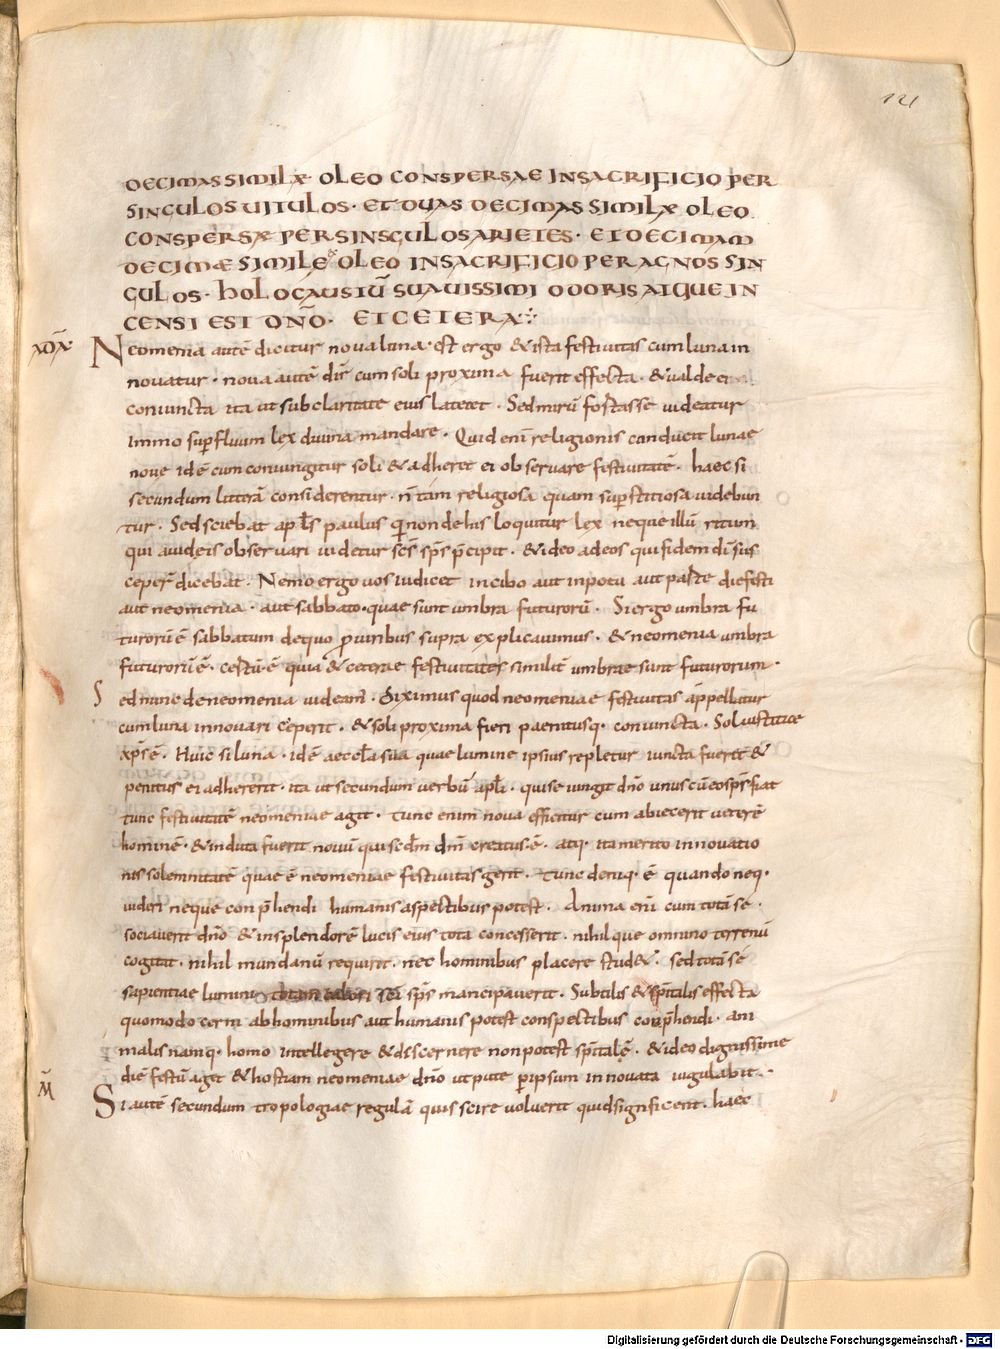 121
DECIMAS SIMILAE OLEO CONSPERSAE IN SACRIFICIO PER
SINGULOS UITULOS · ET DUAS DECIMAS SIMILAE OLEO
CONSPERSAE PER SINSGULOS ARIETES · ET DECIMAM
DECIMAE SIMILE OLEO IN SACRIFICIO PER AGNOS SIN
GULOS · HOLOCAUSTŪ SUAUISSIMI ODORIS ATQUE IN
CENSI EST DNO · ET CETERA
Neomenia autē dicitur noua luna · est ergo & ista festiuitas cum luna in
nouatur · noua autē dir̄ cum soli proxima fuerit effecta · & ualde ei
coniuncta ita ut sub claritate eius lateret · Sed mirū fortasse uideatur
immo supfluum lex diuina mandare · Quid eni religionis conducit lunae
noue idē cum coniungitur soli & adheret ei obseruare festiuitatē · haec si
secundum litterā considerentur · n̄ tam religiosa quam superstitiosa uidebun
tur · Sed sciebat apls paulus q̄ non de his loquitur lex neque illū ritum
qui a iudeis obseruari uidetur scs sps p̄cipit · & ideo ad eos qui fidem di sus
ceper̄ dicebat · Nemo ergo uos iudicet in cibo aut in potu aut parte diei festi
aut neomenia · aut sabbato · quae sunt umbra futurorū · Si ergo umbra fu
turorū ē sabbatum de quo p uiribus supra explicauimus · & neomenia umbra
futurorū ē · certū ē quia & ceterae festiuitates similit̄ umbrae sunt futurorum ·
Sed nunc de neomenia uideam̄ · diximus quod neomeniae festiuitas appellatur
cum luna innouari ceperit · & soli proxima fieri paenitusq · coniuncta · Sol iustitiae
xps ē · Huic si luna · idē aeccla sua quae lumine ipsius repletur iuncta fuerit &
penitus ei adhererit · ita ut secundum uerbū apli · qui se iungit dno unus cū eo sps fiat
tunc festiuitatē neomeniae agit · tunc enim noua efficitur cum abiecerit ueterē
hominē · & induta fuerit nouū qui scdm dm creatus ē · atq · ita merito innouatio
nis solemnitatē quae ē neomeniae festiuitas gerit · Tunc deniq · ē quando neq ·
uideri neque conp̄hendi humanis aspectibus potest · Anima eni cum totā se ·
sociauerit dno & in splendorē lucis eius tota concesserit · nihilque omnino terrenū
cogitat · nihil mundanū requirit · nec hominibus placere stud& · sed totā se
sapientiae lumini sps mancipauerit · Subtilis & spitalis effecta
quomodo cerni ab hominibus aut humanis potest conspectibus conp̄hendi · ani
malis namq · homo intellegere & discernere non potest spitalē · & ideo dignissime
diē festū agit & hostiam neomeniae dno utpute p ipsum innouata iugulabit ·
Si autē secundum tropologiae regulā quis scire uoluerit quid significent · haec
Digitalisierung gefördert durch die Deutsche Forschungsgemeinschaft - DFG